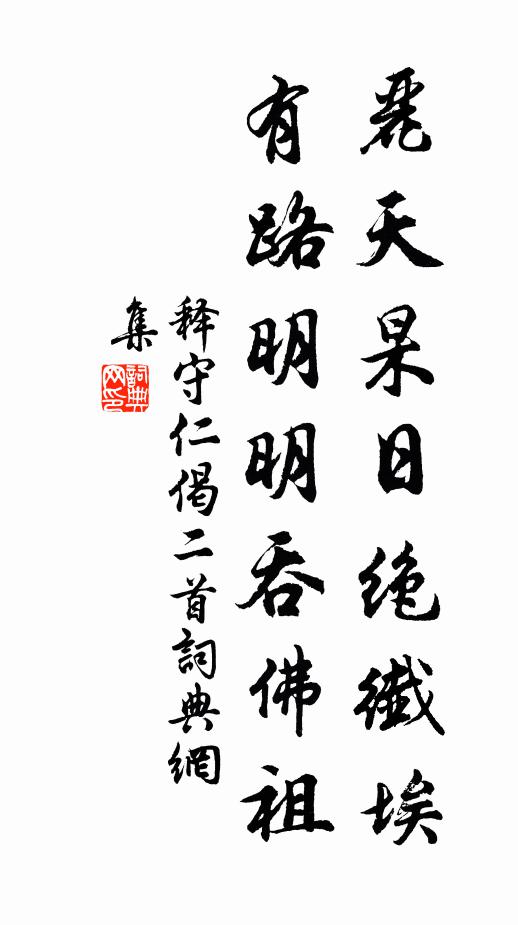 麗天杲日絶纖埃
有路明明吞佛祖
释守仁偈二首詞典網
集
詞典网印